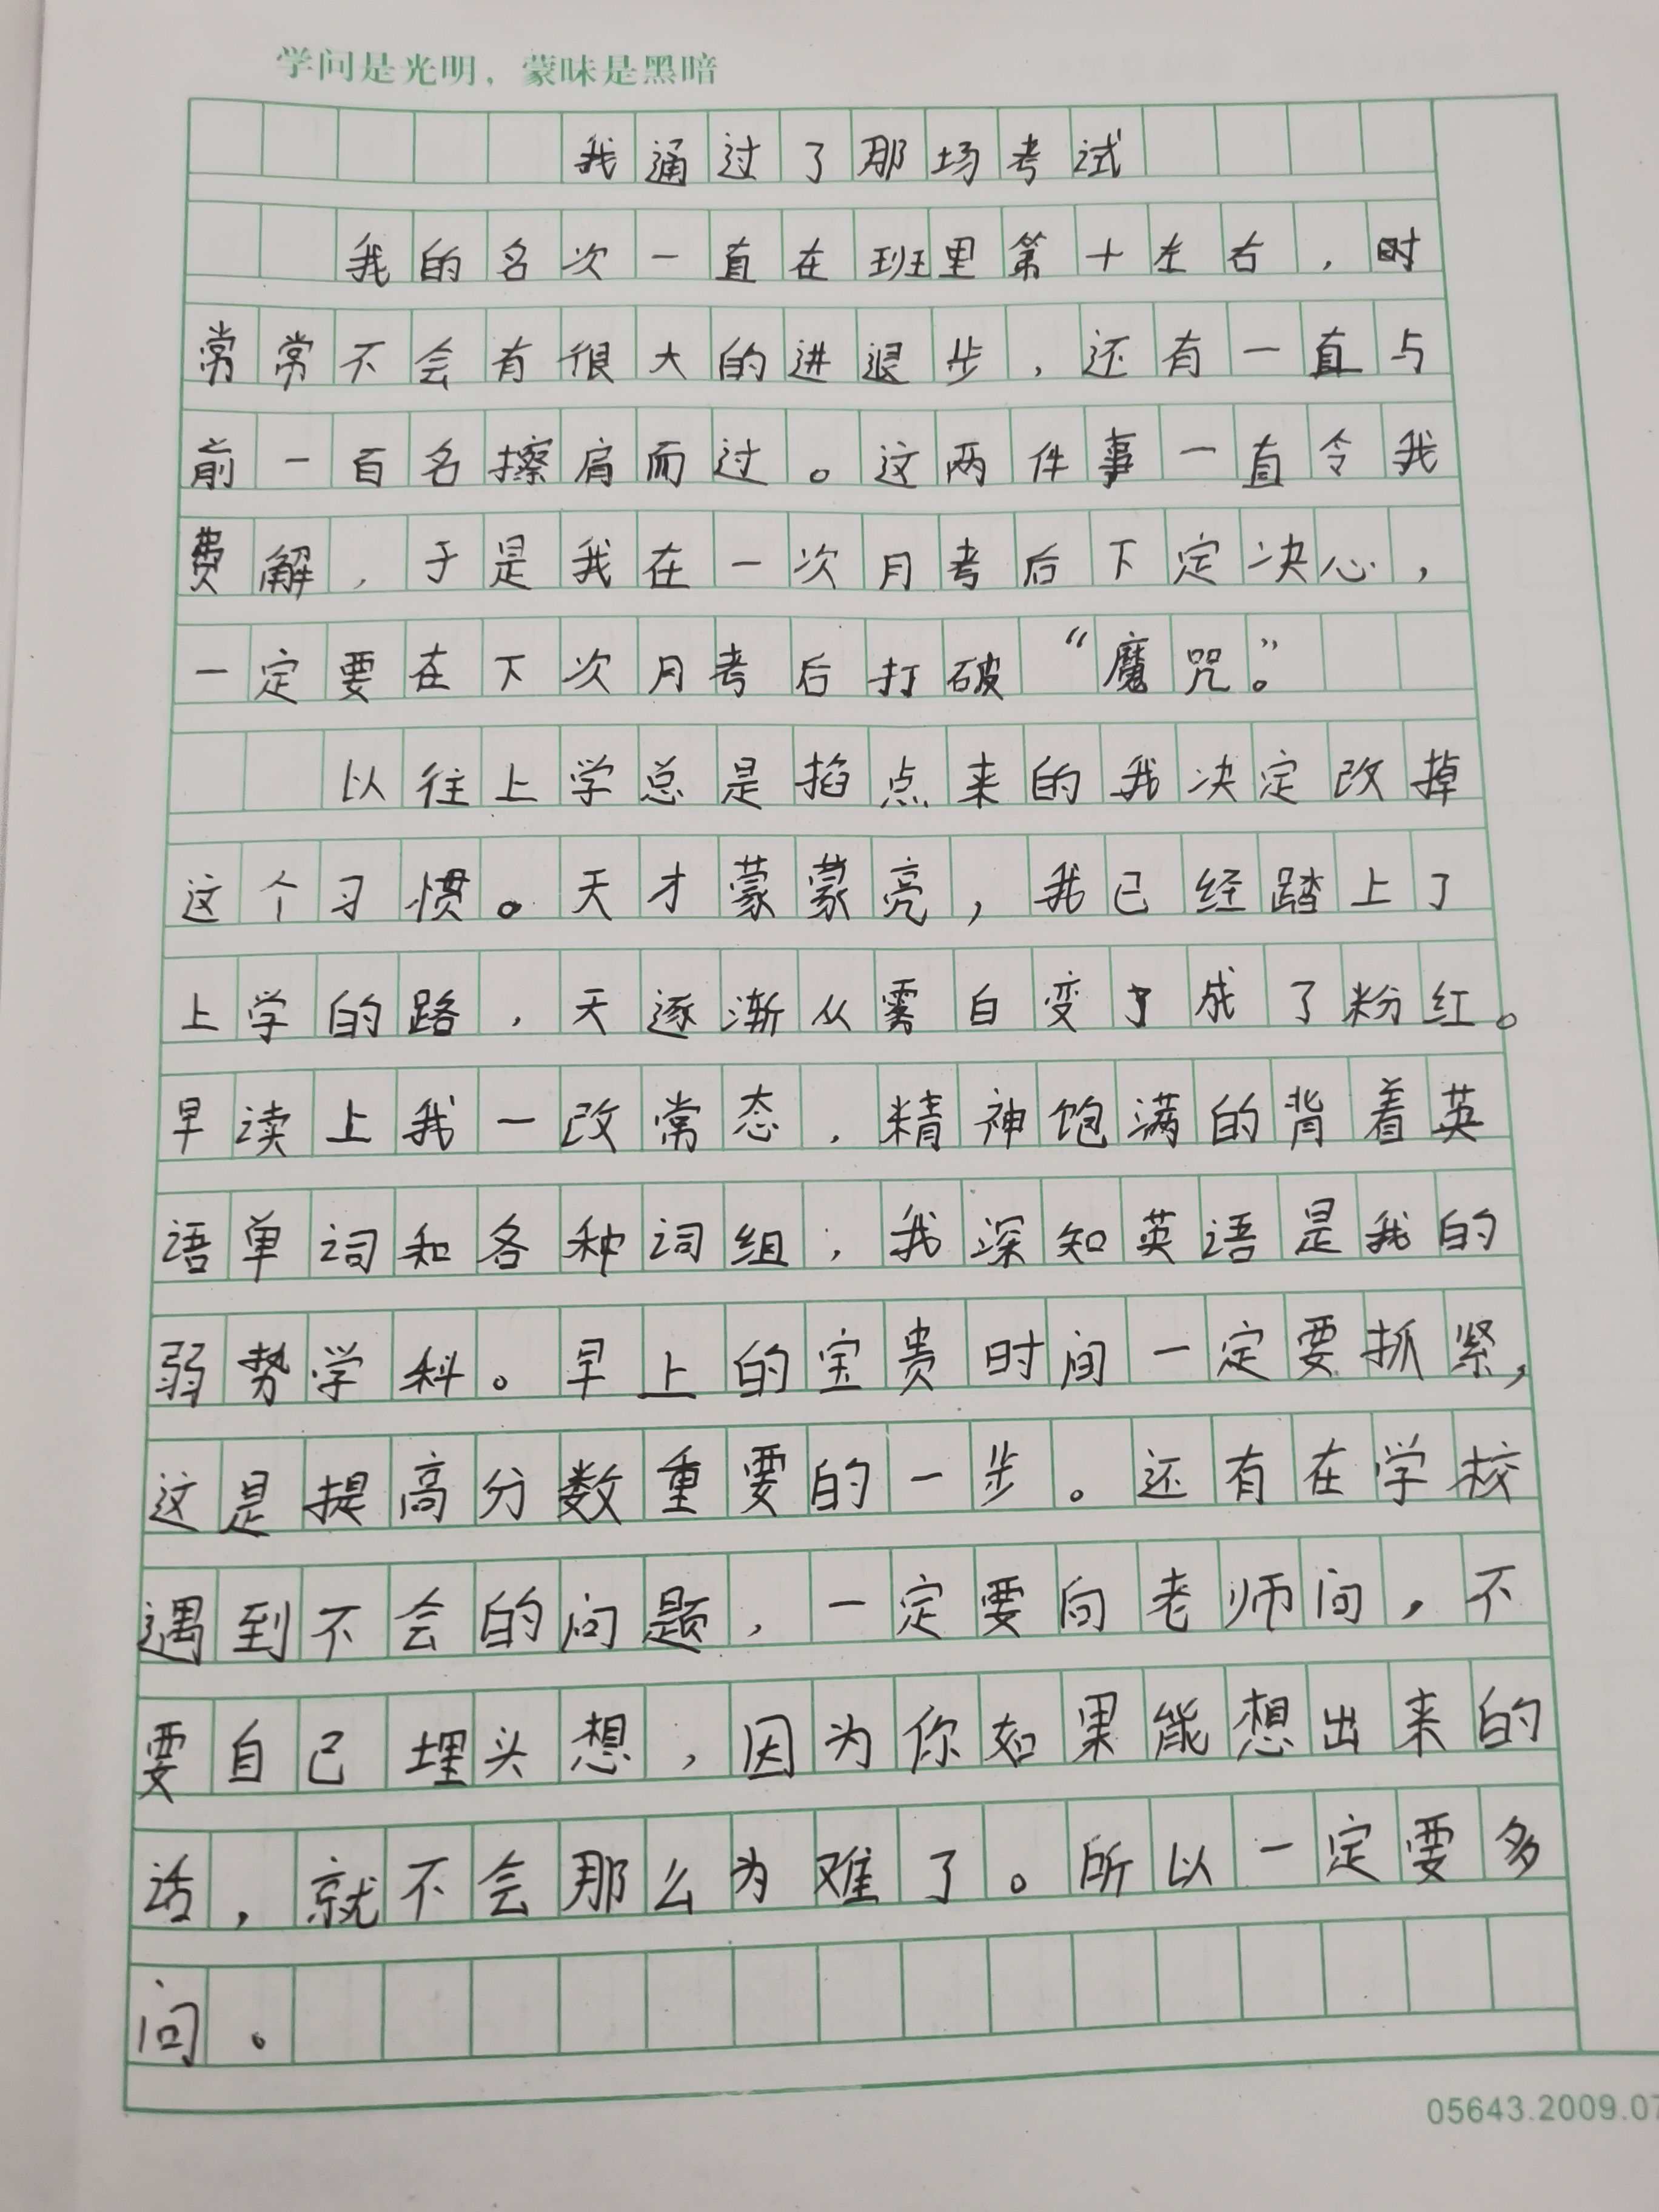 学问是光明，蒙昧是黑暗
我通过了那场考试
我的名次一直在班里第十左右，时
常常不会有很大的进退步，还有一直与
前一百名擦肩而过。这两件事一直令我
费解，于是我在一次月考后下定决心，
一定要在下次月考后打破“魔咒。”
以往上学总是掐点来的我决定改掉
这个习惯。天才蒙蒙亮，我已经踏上了
上学的路，天逐渐从雾白变了成了粉红。
早读上我一改常态，精神饱满的背着英
语单词和各种词组，我深知英语是我的
弱势学科。早上的宝贵时间一定要抓紧，
这是提高分数重要的一步。还有在学校
遇到不会的问题，一定要向老师问，不
要自己埋头想，因为你如果能想出来的
话，就不会那么为难了。所以一定要多
问。
05643.2009.07